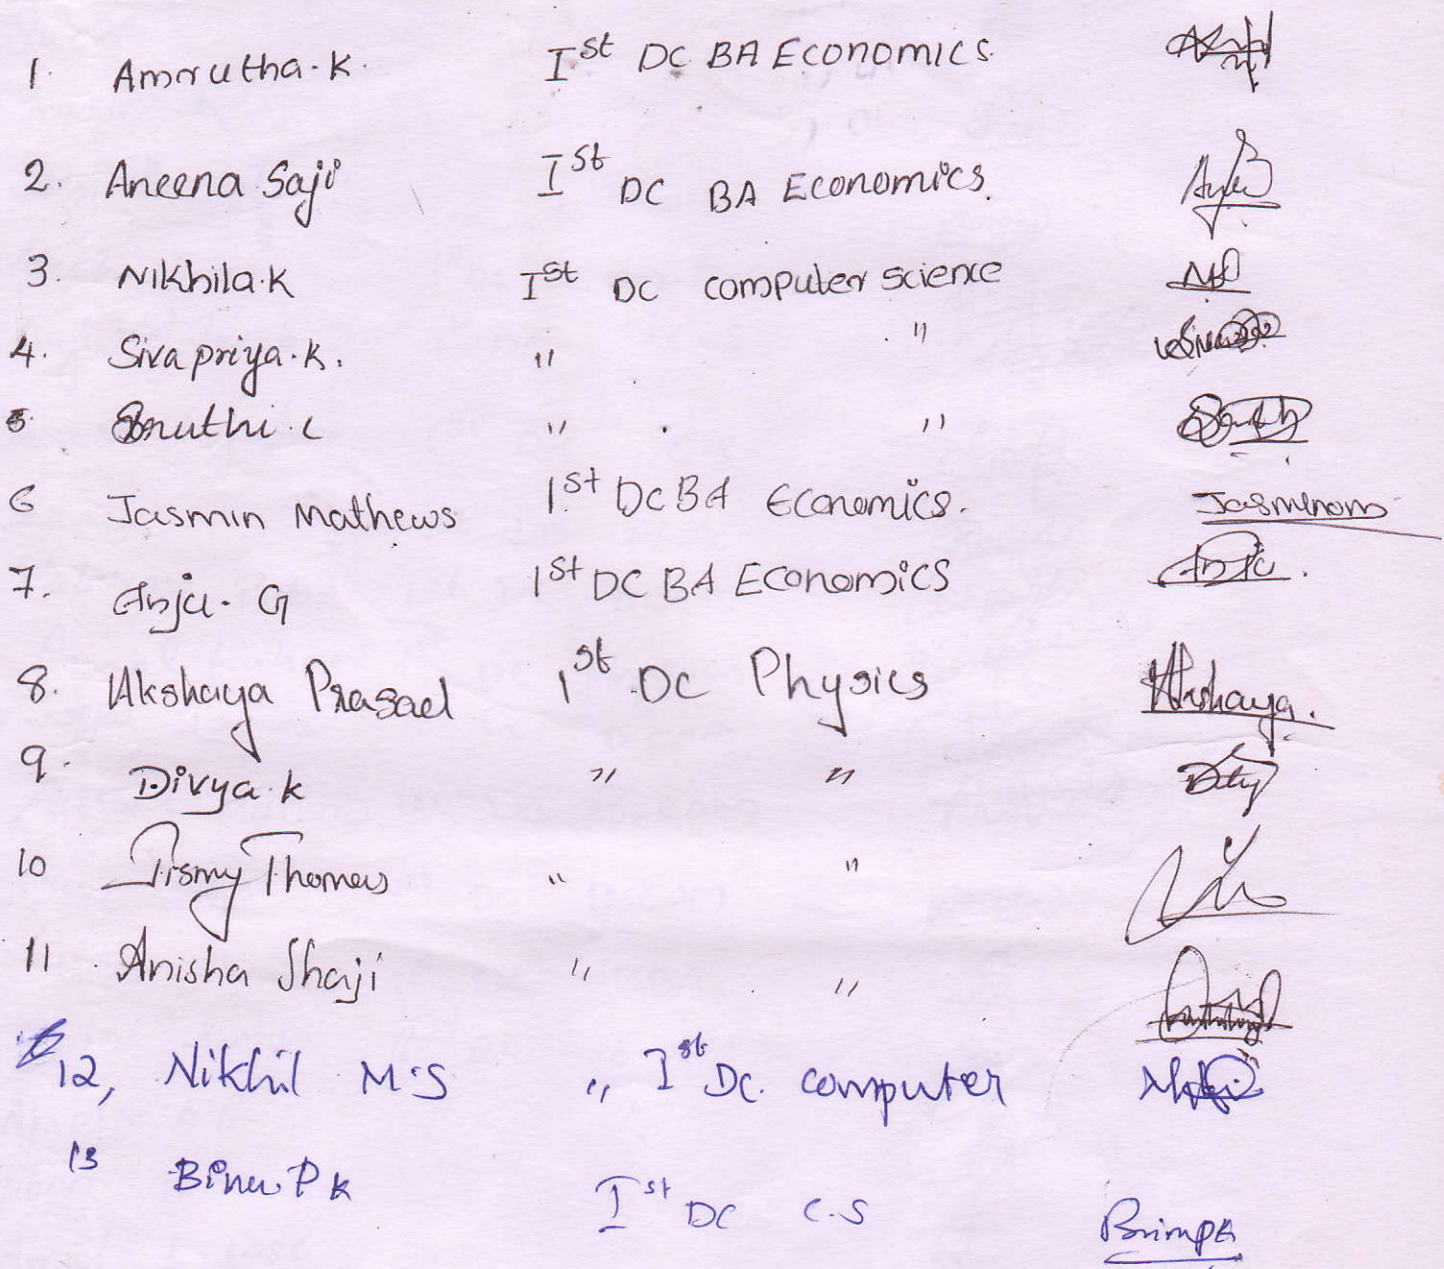 1. Amrutha.K. Ist DC BA Economics.
2. Aneena Saji Ist DC BA Economics.
3. Nikhila.K Ist DC computer science
4. Sivapriya.K. " "
5. Sruthi.C " "
6 Jasmin Mathews 1st DC BA Economics. Jasminom
7. Anju. G 1st DC BA Economics
8. Akshaya Prasad 1st DC Physics Akshaya.
9. Divya.K " "
10 Jismy Thomas " "
11. Anisha Shaji " "
12, Nikhil M.S " Ist DC. computer
13 Binu P K Ist DC C.S